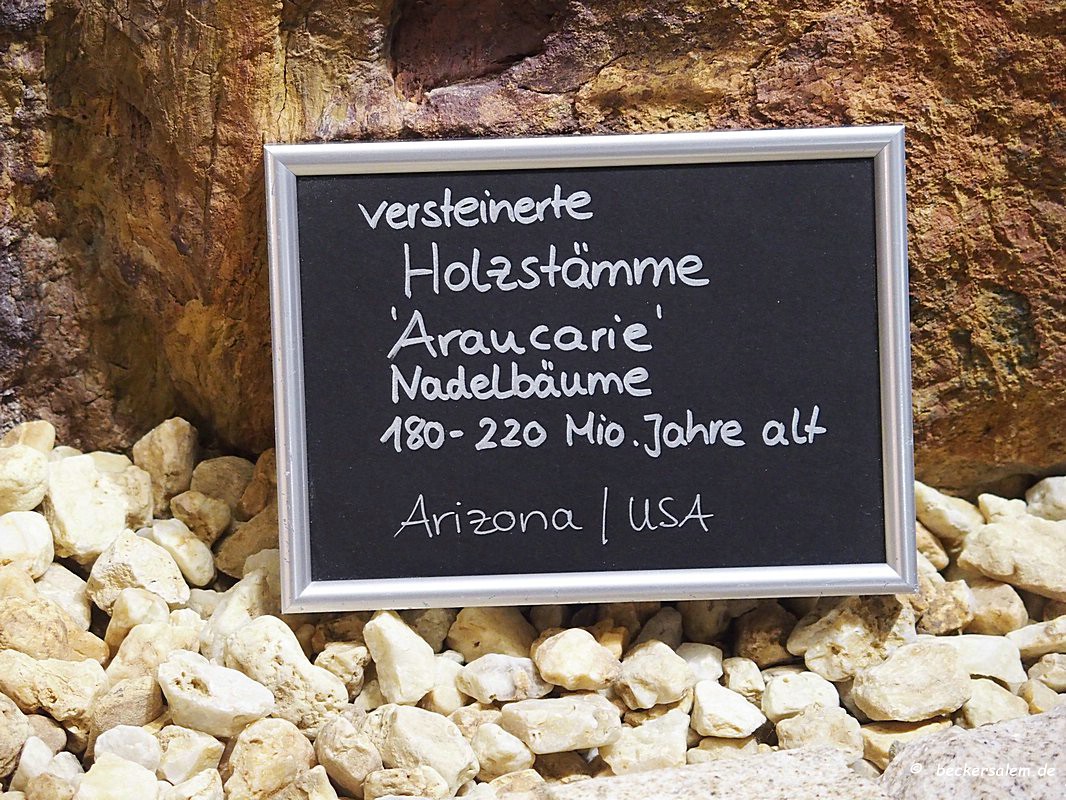 versteinerte
Holzstämme
'Araucarie'
Nadelbäume
180-220 Mio. Jahre alt
Arizona | USA
© beckersalem.de